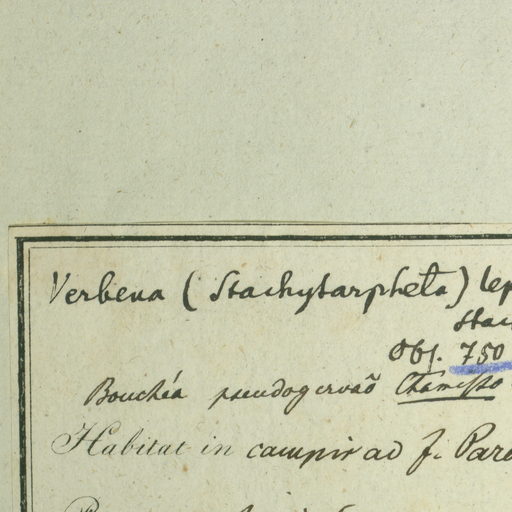 Verbena (Stachytarpheta) lep
Stac
Obs. 750
Bouchéa pseudogervaõ Chamisso
Habitat in campis ad f. Par